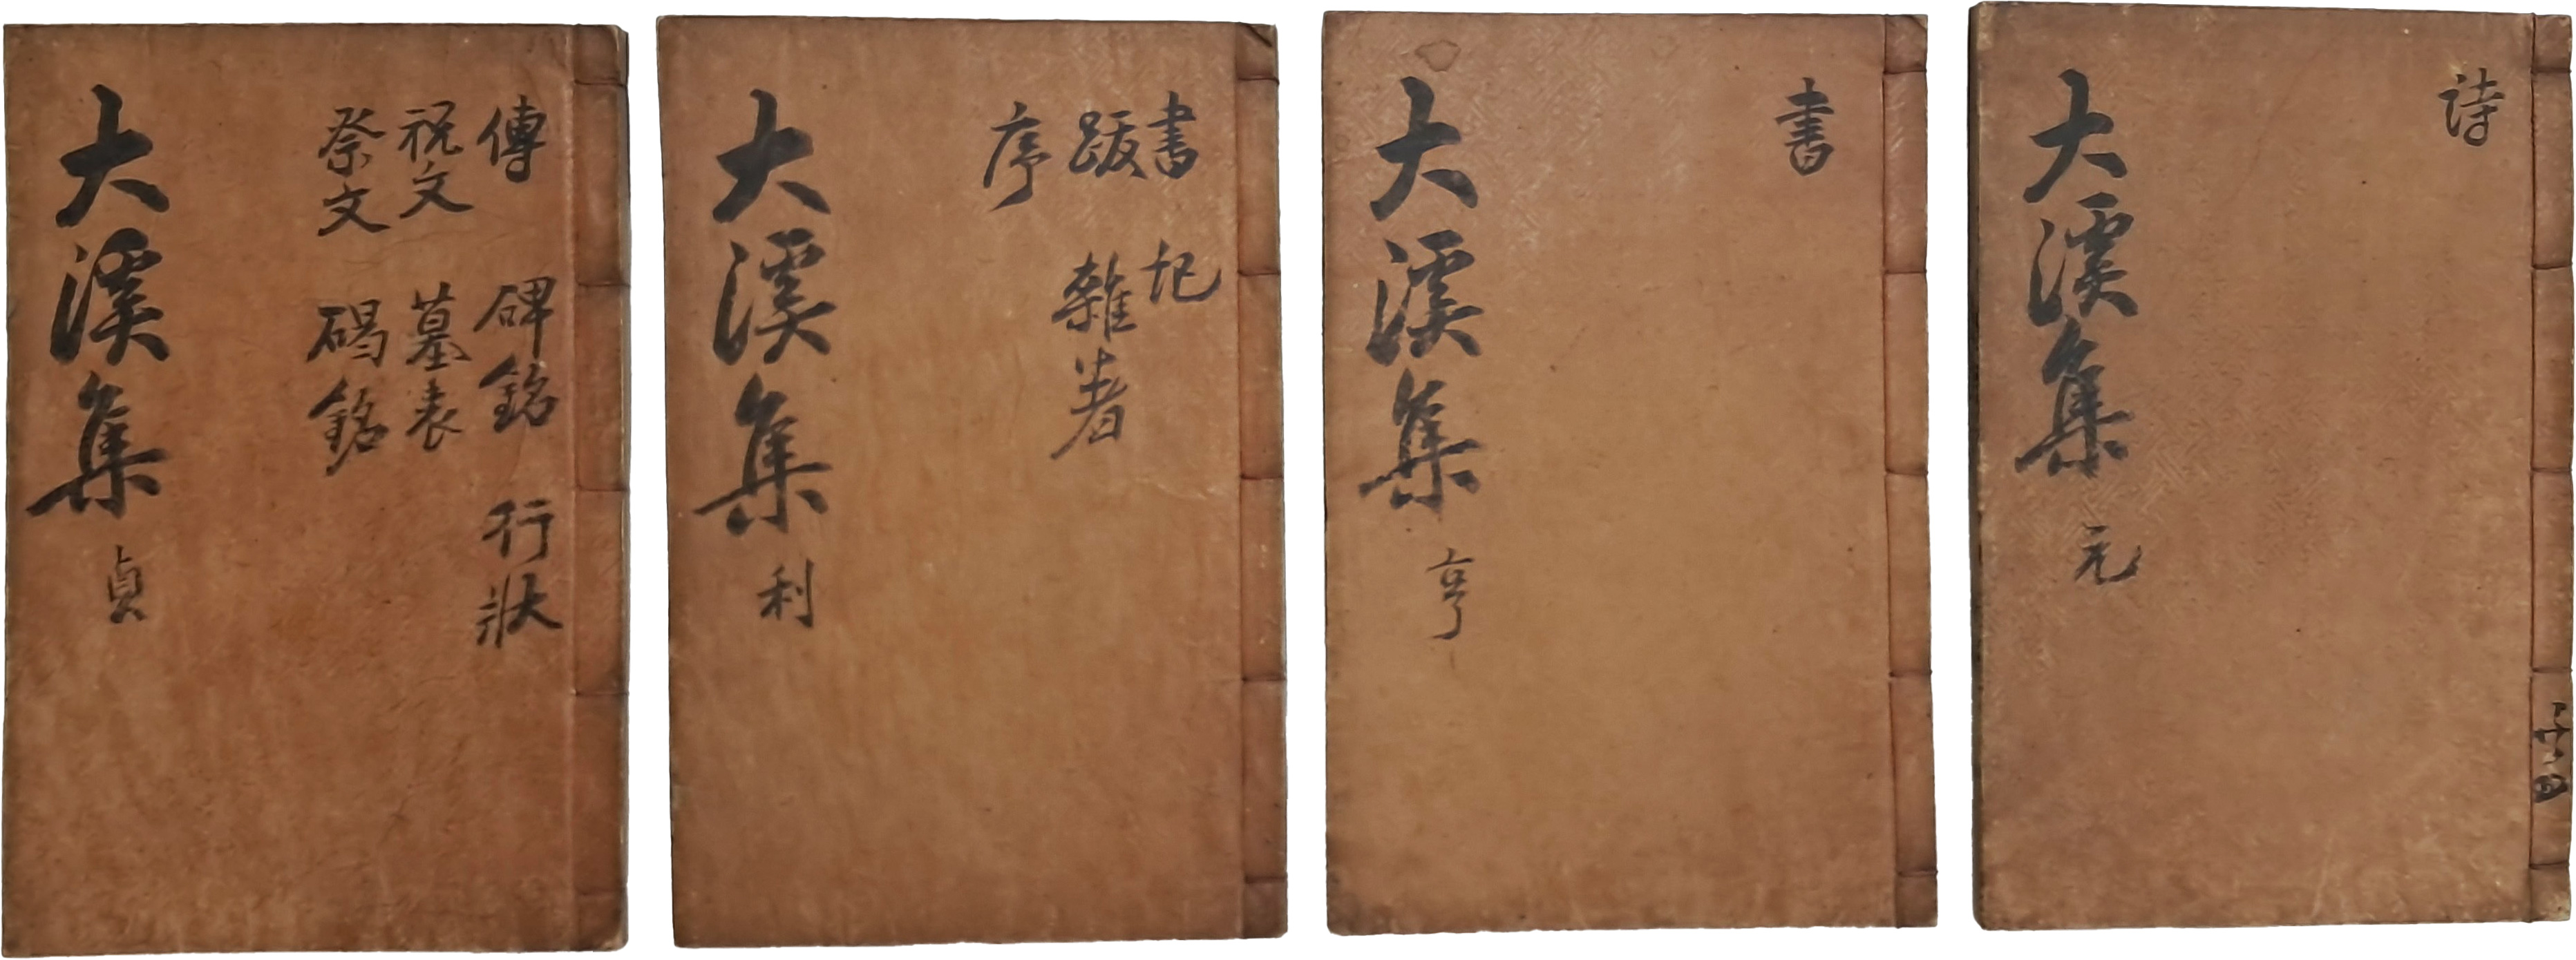 詩
大溪集 元
書
大溪集 亨
書 記
跋 雜著
序
大溪集 利
傳 碑銘 行狀
祝文 墓表
祭文 碣銘
大溪集 貞